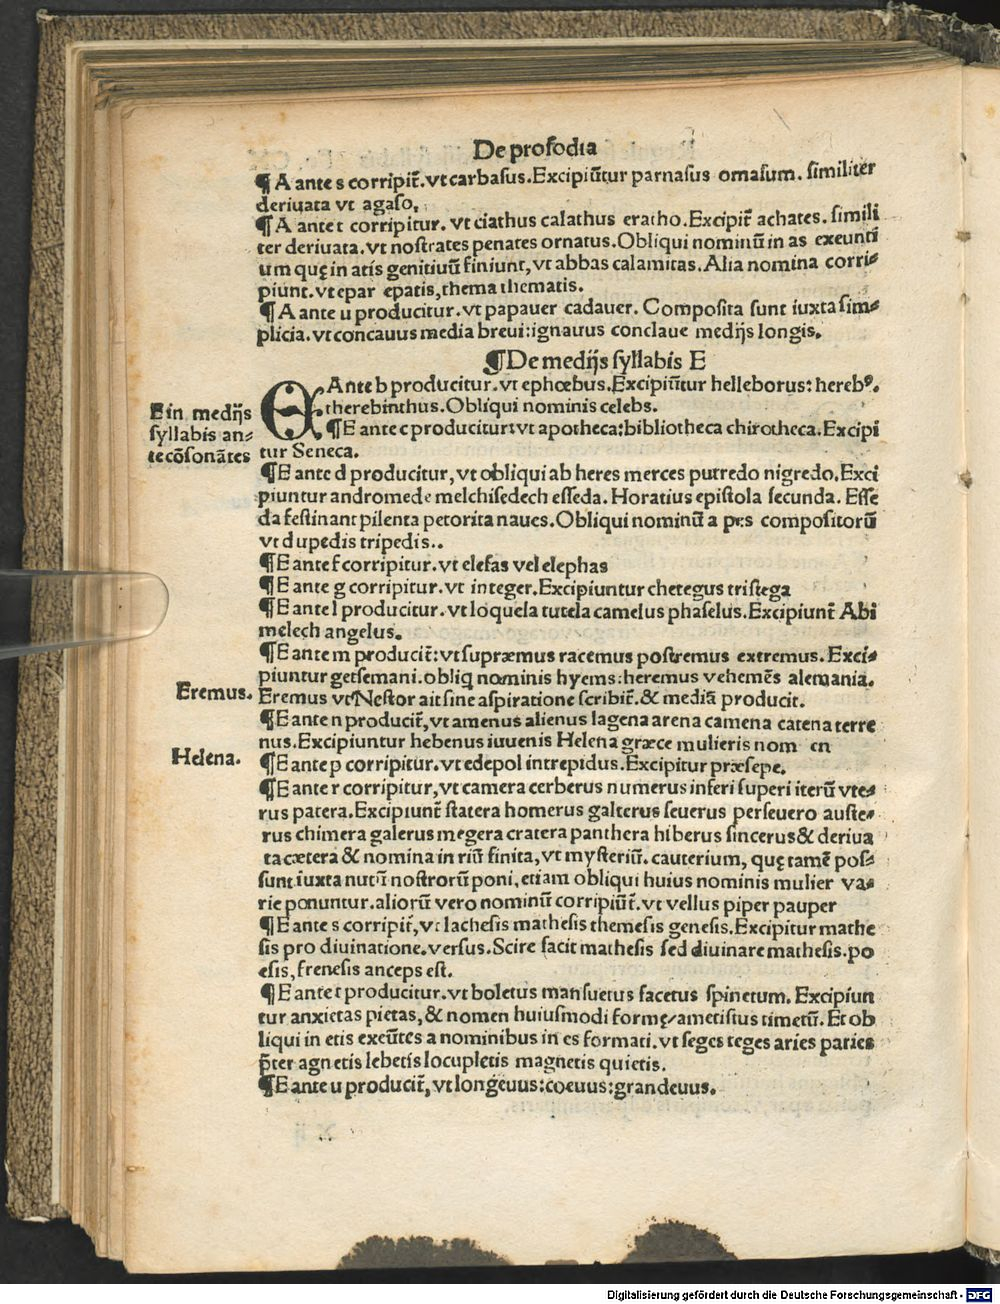 De prosodia
¶ A ante s corripit᷑. vt carbasus. Excipiūtur parnasus omasum. similiter
deriuata vt agaso.
¶ A ante t corripitur. vt ciathus calathus eratho. Excipit᷑ achates. simili
ter deriuata. vt nostrates penates ornatus. Obliqui nominū in as exeunti
um quę in atis genitiuū finiunt, vt abbas calamitas. Alia nomina corri⸗
piunt. vt epar epatis, thema thematis.
¶ A ante u producitur. vt papauer cadauer. Composita sunt iuxta sim⸗
plicia. vt concauus media breui: ignauus conclaue medijs longis.
¶ De medijs syllabis E
E Ante b producitur. vt ephœbus. Excipiūtur helleborus: herebꝰ.
therebinthus. Obliqui nominis celebs.
E in medijs
syllabis an⸗
te cōsonātes
¶ E ante c producitur: vt apotheca: bibliotheca chirotheca. Excipi
tur Seneca.
¶ E ante d producitur, vt obliqui ab heres merces putredo nigredo. Exci
piuntur andromede melchisedech esseda. Horatius epistola secunda. Esse
da festinant pilenta petorita naues. Obliqui nominū a pes compositorū
vt dupedis tripedis..
¶ E ante f corripitur. vt elefas vel elephas
¶ E ante g corripitur. vt integer. Excipiuntur chetegus tristega
¶ E ante l producitur. vt loquela tutela camelus phaselus. Excipiunt᷑ Abi
melech angelus.
¶ E ante m producit᷑: vt supræmus racemus postremus extremus. Exci⸗
piuntur getsemani. obliq nominis hyems: heremus vehemēs alemania.
Eremus.
Eremus vt Nestor ait sine aspiratione scribit᷑. & mediā producit.
¶ E ante n producit᷑, vt amenus alienus lagena arena camena catena terre
nus. Excipiuntur hebenus iuuenis Helena græce mulieris nomen
Helena.
¶ E ante p corripitur. vt edepol intrepidus. Excipitur præsepe.
¶ E ante r corripitur, vt camera cerberus numerus inferi superi iterū vte⸗
rus patera. Excipiunt᷑ statera homerus galterus seuerus perseuero auste⸗
rus chimera galerus megera cratera panthera hiberus sincerus & deriua
ta cætera & nomina in riū finita, vt mysteriū. cauterium, quę tamē pos⸗
sunt iuxta nutū nostrorū poni, etiam obliqui huius nominis mulier va⸗
rie ponuntur. aliorū vero nominū corripiūt᷑. vt vellus piper pauper
¶ E ante s corripit᷑, vt lachesis mathesis themesis genesis. Excipitur mathe
sis pro diuinatione. versus. Scire facit mathesis sed diuinare mathesis. po
esis, frenesis anceps est.
¶ E ante t producitur. vt boletus mansuetus facetus spinetum. Excipiun
tur anxietas pietas, & nomen huiusmodi formę/ ametistus timetū. Et ob
liqui in etis exeūtes a nominibus in es formati. vt seges teges aries paries
p̄ter agnetis lebetis locupletis magnetis quietis.
¶ E ante u producit᷑, vt longeuus: coeuus: grandeuus.
Digitalisierung gefördert durch die Deutsche Forschungsgemeinschaft - DFG